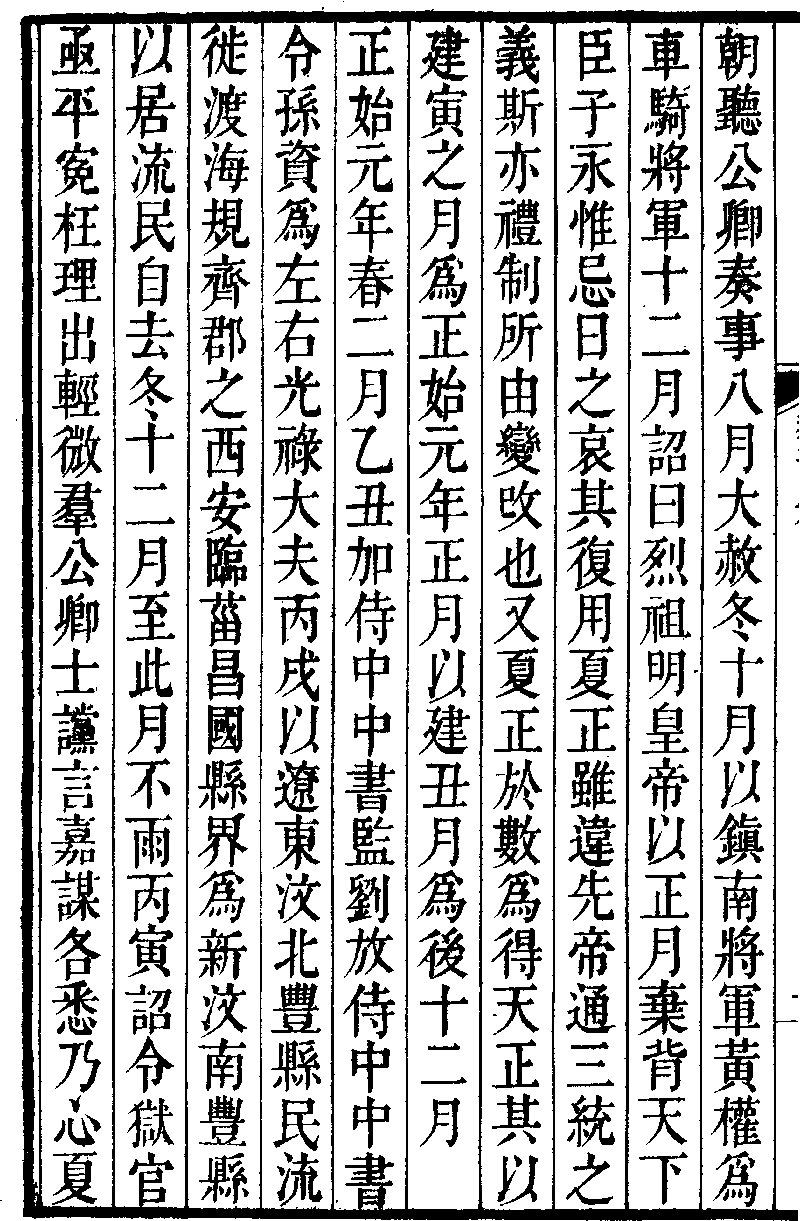 朝聽公卿奏事八月大赦冬十月以鎮南將軍黃權爲
車騎將軍十二月詔曰烈祖明皇帝以正月棄背天下
臣子永惟忌日之哀其復用夏正雖違先帝通三統之
義斯亦禮制所由變改也又夏正於數爲得天正其以
建寅之月爲正始元年正月以建丑月爲後十二月
正始元年春二月乙丑加侍中中書監劉放侍中中書
令孫資爲左右光祿大夫丙戌以遼東汶北豐縣民流
徙渡海規齊郡之西安臨菑昌國縣界爲新汶南豐縣
以居流民自去冬十二月至此月不雨丙寅詔令獄官
亟平寃枉理出輕微羣公卿士讜言嘉謀各悉乃心夏